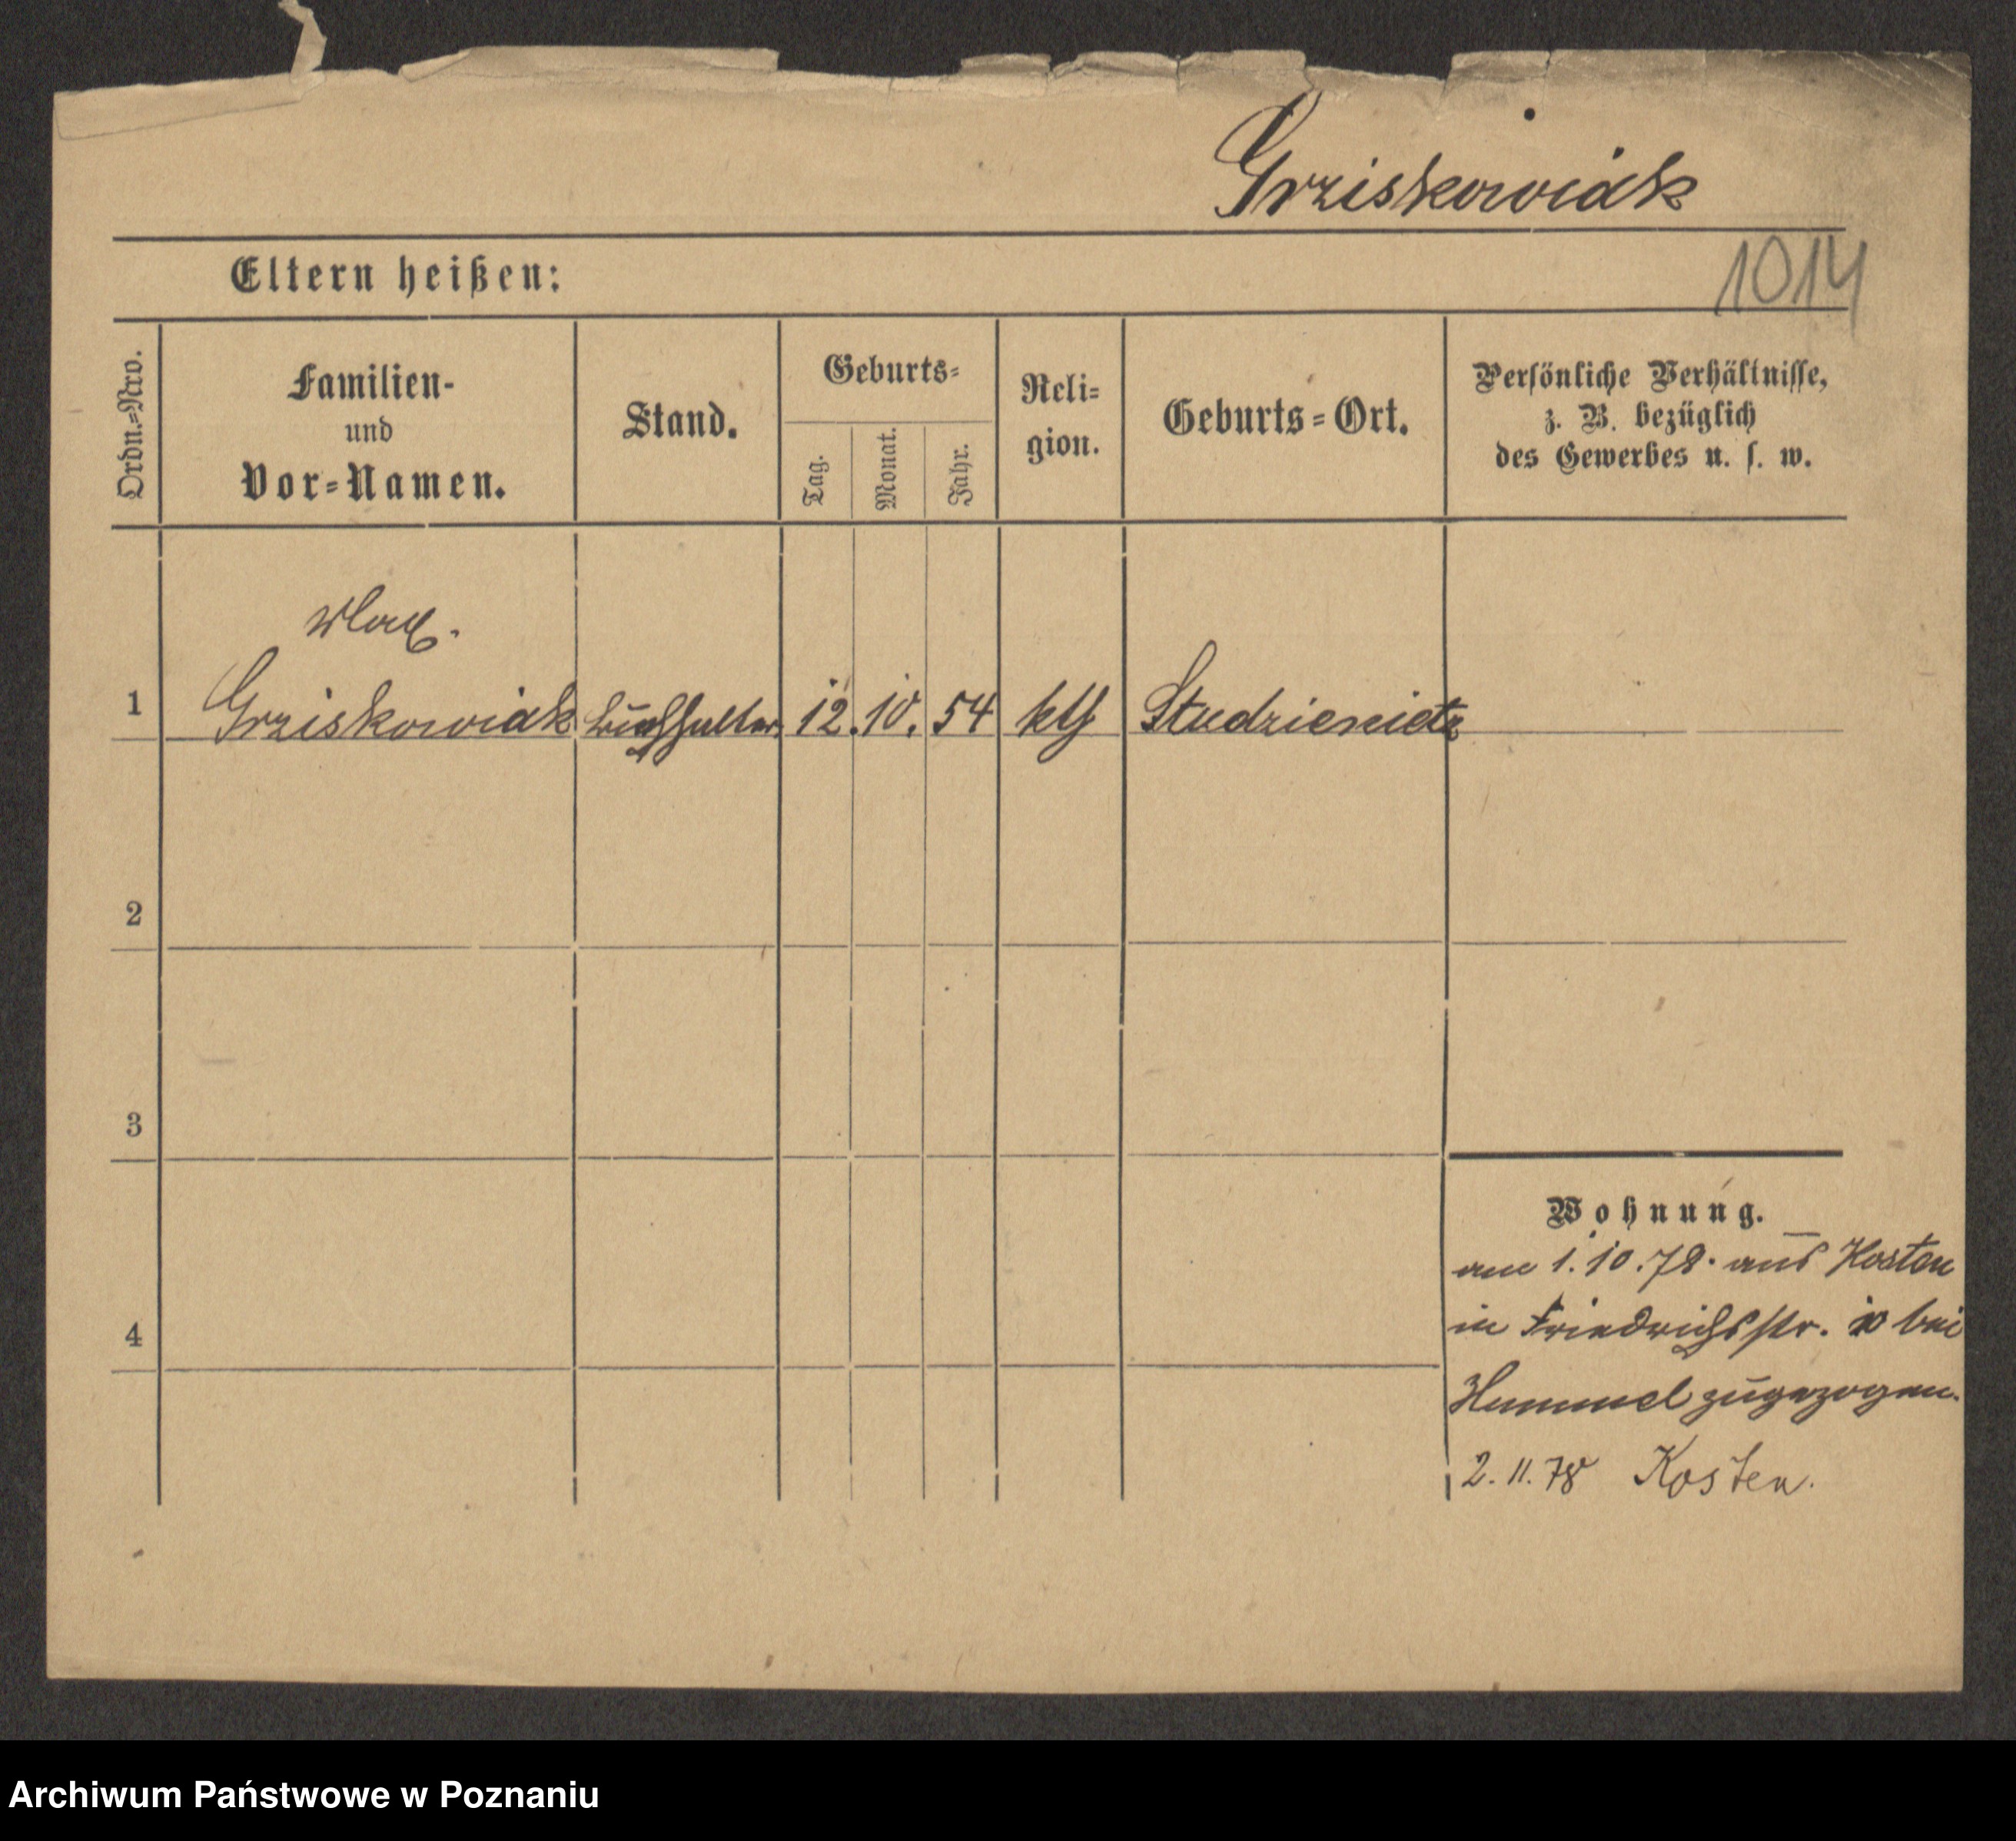 Grziskowiak
1014
Eltern heißen:
Ordn.-Nro.
Familien-
und
Vor-Namen.
Stand.
Geburts-
Tag.
Monat.
Jahr.
Reli-
gion.
Geburts-Ort.
Persönliche Verhältnisse,
z. B. bezüglich
des Gewerbes u. s. w.
1 Grziskowiak Buchhalter 12. 10. 54 kth Studzienietz
2
3
4
Wohnung.
am 1. 10. 78. aus Kosten
in Friedrichsstr. 10 bei
Hummel zugezogen.
2. 11. 78 Kosten.
Archiwum Państwowe w Poznaniu